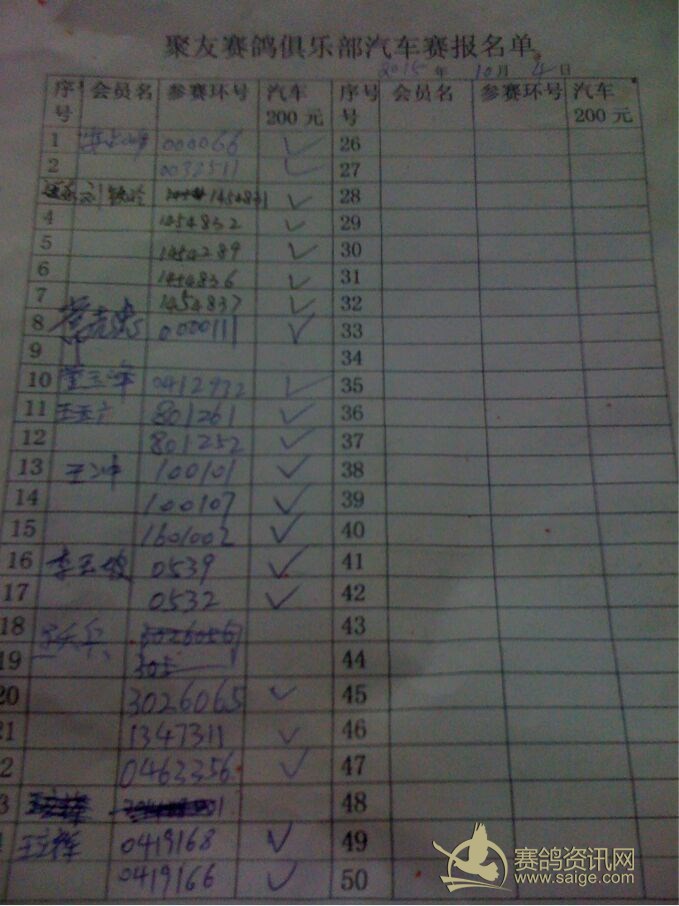 聚友赛鸽俱乐部汽车赛报名单
2015年 10月 4日
序号 会员名 参赛环号 汽车200元 序号号 会员名 参赛环号 汽车200元
1 000066 ✓ 26
2 0032511 ✓ 27
1454831 ✓ 28
4 1454832 ✓ 29
5 1454289 ✓ 30
6 1454836 ✓ 31
7 1454837 ✓ 32
8 0000111 ✓ 33
9 34
10 0412932 ✓ 35
11 801261 ✓ 36
12 801252 ✓ 37
13 王冲 100101 ✓ 38
14 100107 ✓ 39
15 1601002 ✓ 40
16 0539 ✓ 41
17 0532 ✓ 42
18 43
19 44
20 3026065 ✓ 45
21 1347311 ✓ 46
2 0462356 ✓ 47
3 48
王立辉 0419168 ✓ 49
0419166 ✓ 50
赛鸽资讯网
www.saige.com